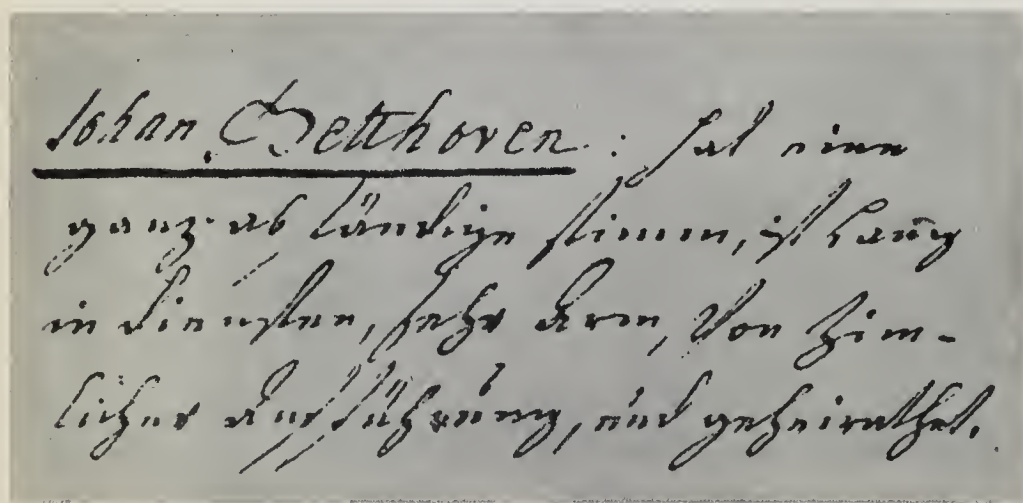 Johan Betthoven : hat eine
ganz abständige stimm, ist Lang
in diensten, sehr arm, von zim-
licher aufführung, und geheirathet.